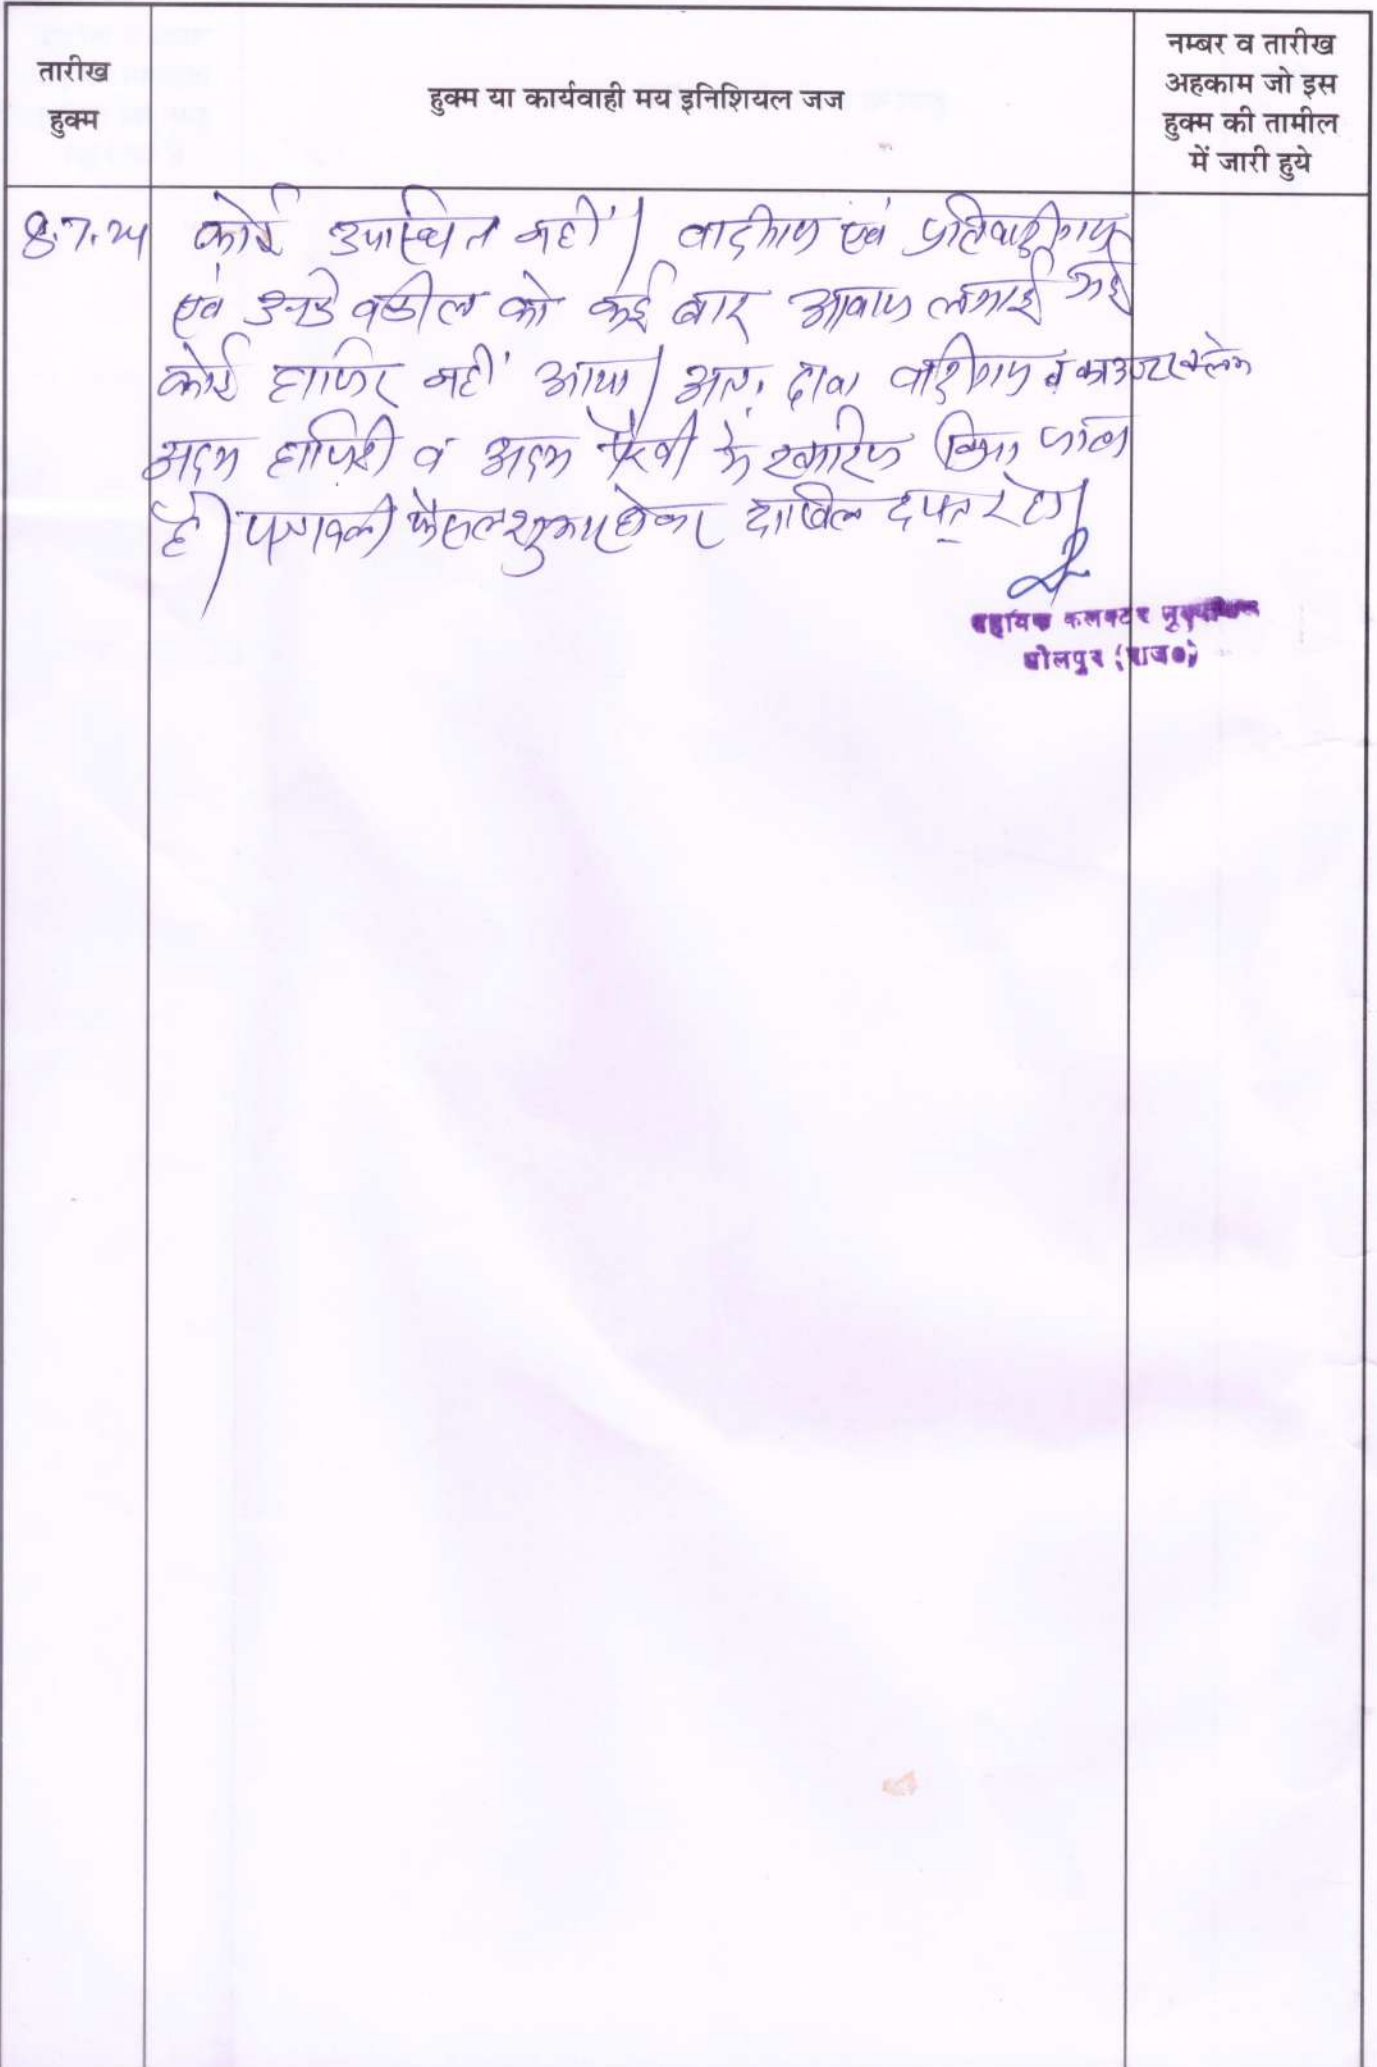 तारीख
हुक्म
हुक्म या कार्यवाही मय इनिशियल जज
नम्बर व तारीख
अहकाम जो इस
हुक्म की तामील
में जारी हुये
8.7.24
कोई उपस्थित नहीं। वादीगण एवं प्रतिवादीगण
एवं उनके वकील को कई बार आवाज लगाई गई
कोई हाजिर नहीं आया। अतः दावा वादीगण व काउन्टरक्लेम
अदम हाजिरी व अदम पैरवी में खारिज किया जाता
है। पत्रावली फैसल शुमार होकर दाखिल दफ्तर हो।
सहायक कलक्टर
धोलपुर (राज०)